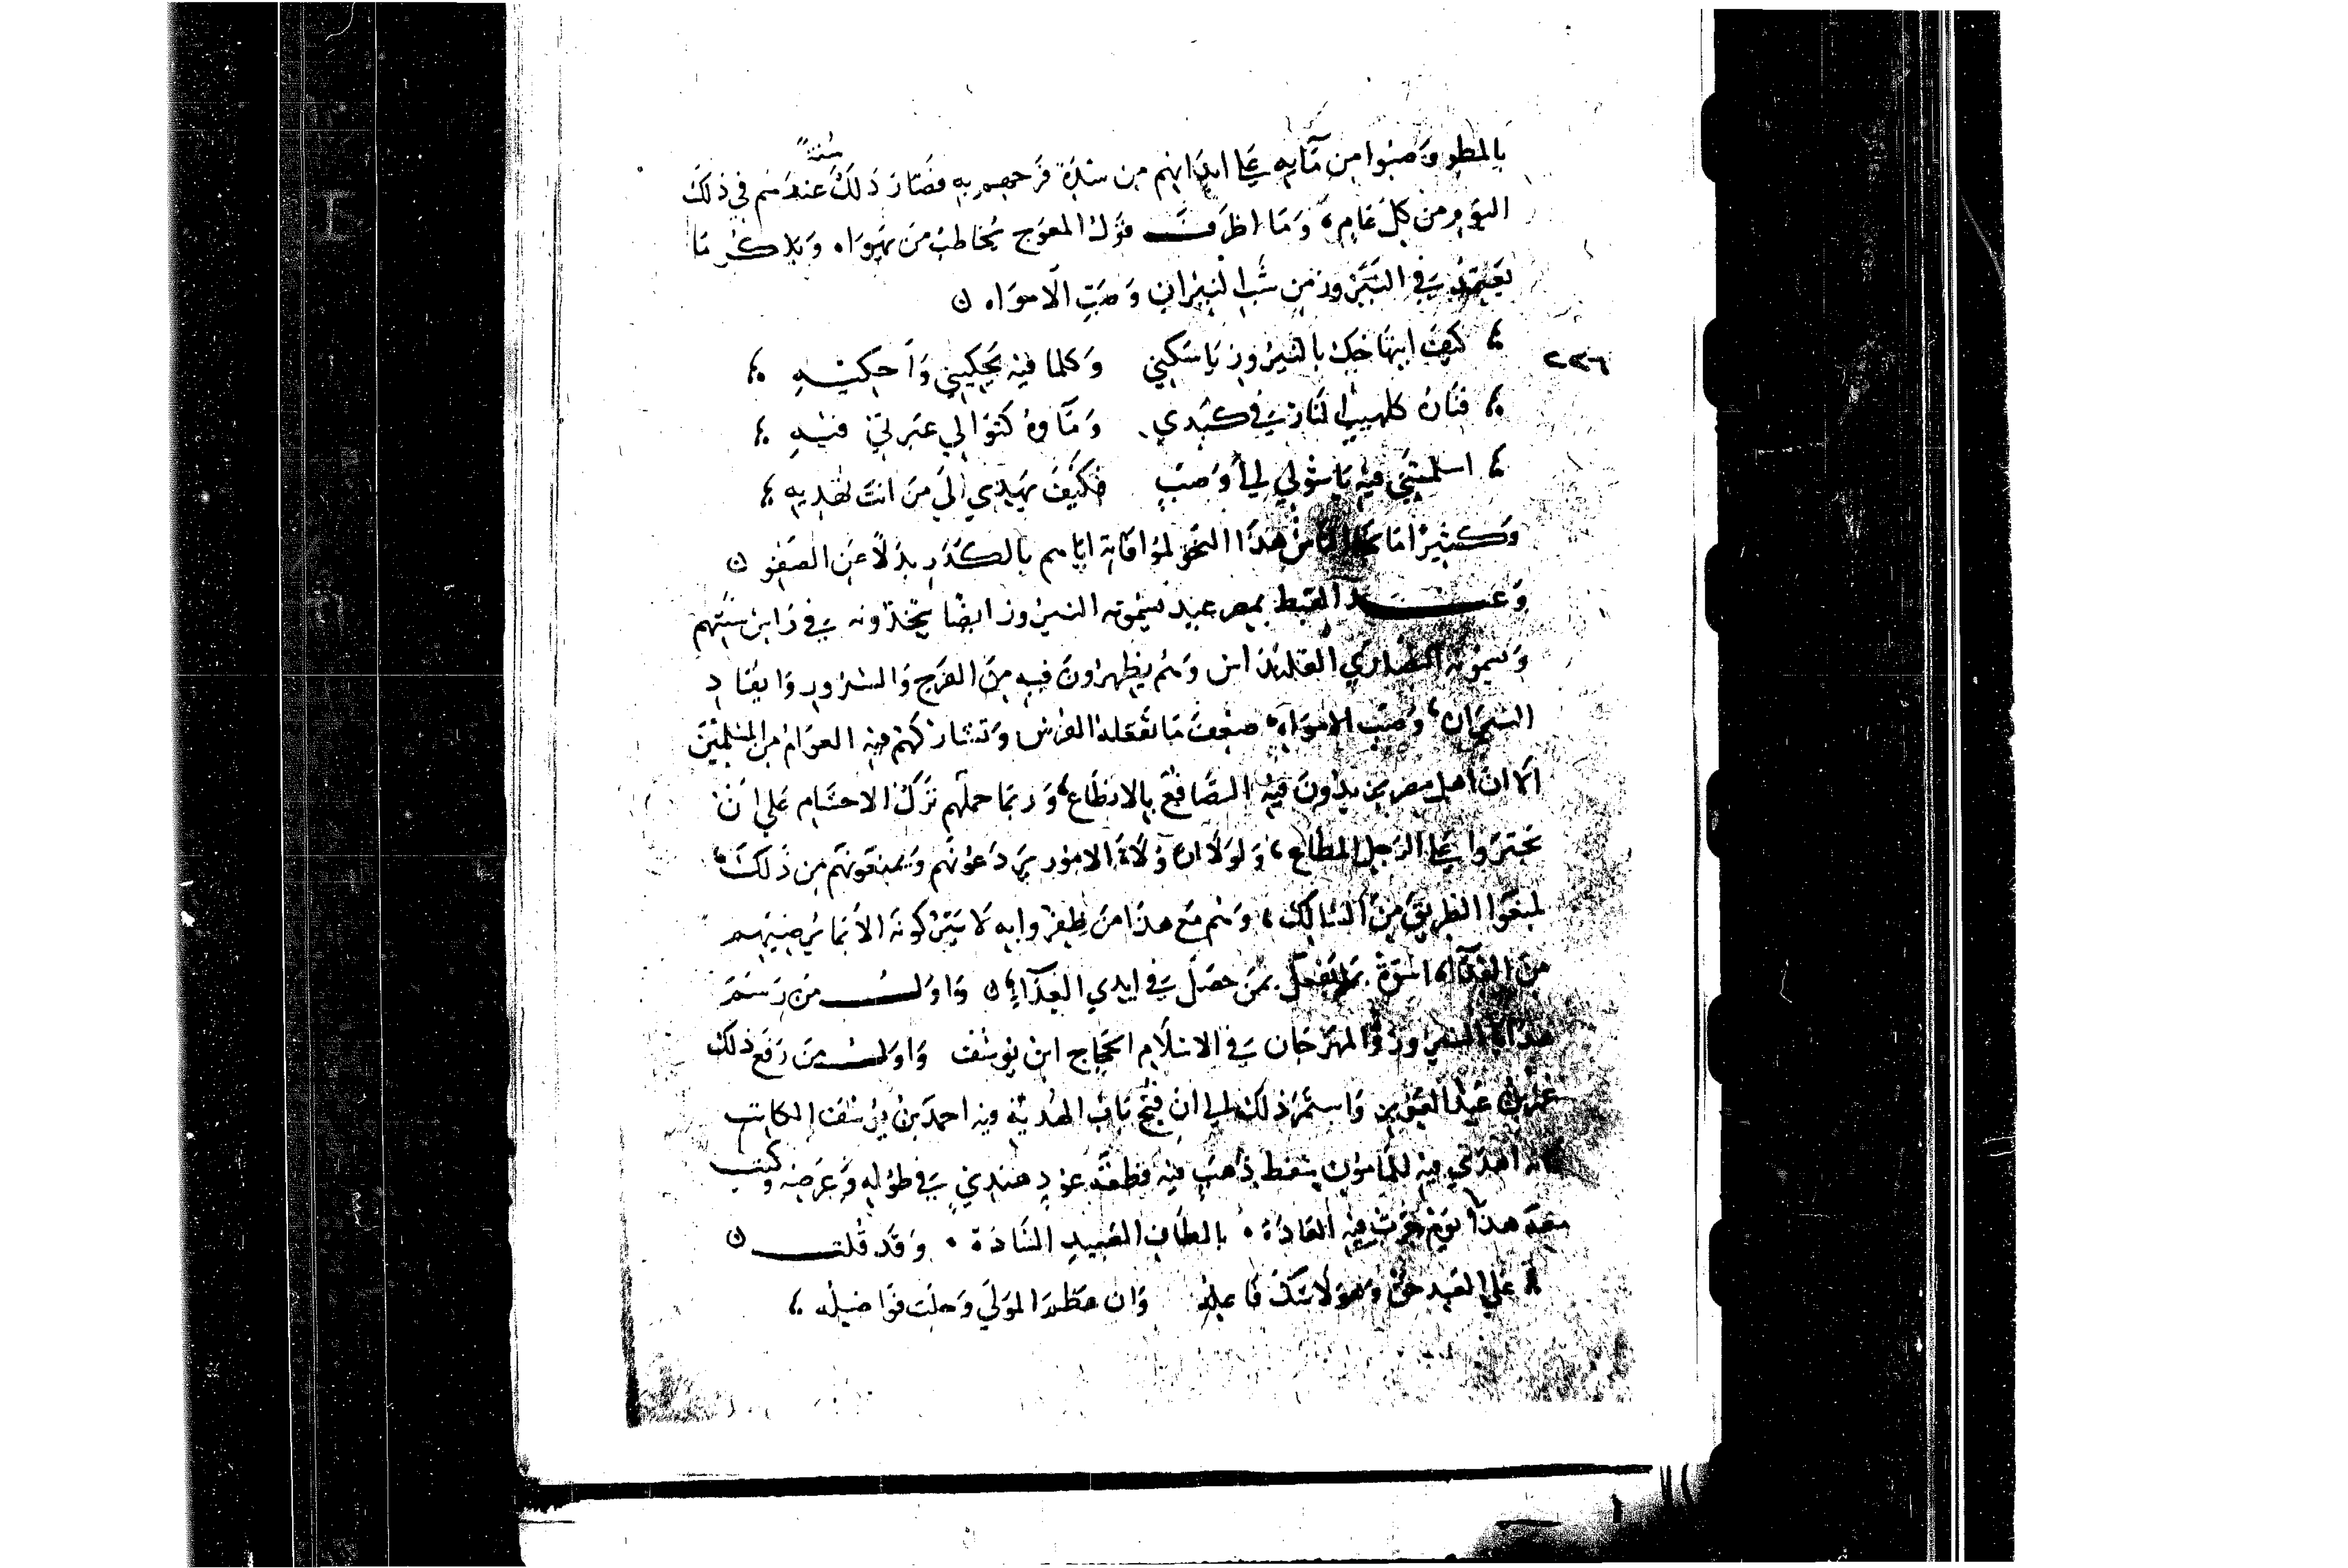 بالمطر وصبوا من مآيه علي ابدانهم من شدة فرحهم به فصار ذلك سُنَّةً عندهم في ذلك
اليوم من كل عام، وما اظرفَ قول المعوج يخاطب من يهواه ويذكر ما
يعتمد في النيروز من شب النيران وصب الامواه
كيف ابتهاجك بالنيروز يا سكني وكلما فيه يحكيني واحكيه
٢٢٦
فناره كلهيب النار في كبدي وماوه كتوالي عبرتي فيه
اسلمتني فيه يا سُولي الي وصب فكيف تهدي الي من انت تهديه
وكثيرا ما الناس هذا النحو لموافاة ايامهم بالكدر بدلاً عن الصفو
وعند القبط بمصر عيد يسمونه النيروز ايضا يتخذونه في راس سنتهم
ويسمونه النصاري القلنداس وهم يظهرون فيه من الفرح والسرور وايقاد
النيران، وصب الامواه، ضعف ما تفعله الفرس وتشاركهم فيه العوام من المسلمين
الا ان اهل مصر يزيدون فيه التصافع بالانطاع، وربما حملهم ترك الاحتشام علي ان
يجتروا علي الرجل المطاع، ولولا ان ولاة الامور يردعونهم ويمنعونهم من ذلك
لمنعوا الطريق من السالك، وهم مع هذا من ظفروا به لا يتركونه الا بما يرضيهم
من الفدآء اسوة بما يفعل بمن حصل في ايدي العدآء واول من رسم
هدايا النيروز والمهرجان في الاسلام الحجاج ابن يوسف واول من رفع ذلك
عمر بن عبد العزيز واستمر ذلك الي ان فتح باب الهدية فيه احمد بن يوسف الكاتب
فانه اهدي فيه للمامون سفط ذهب فيه قطعة عود هندي في طوله وعرضه وكتب
معه هذا يوم جرت فيه العادة بالطاف العبيد السادة وقد قلت
علي العبد حق وهو لا شك فاعله وان عظم المولي وجلت فواضله